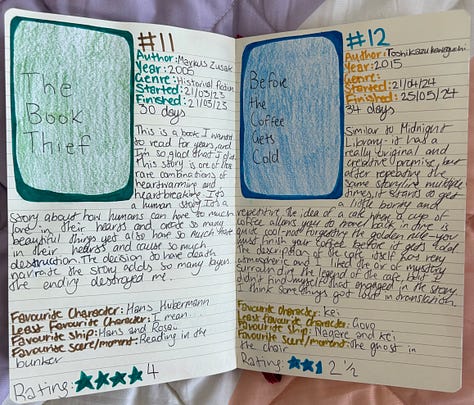 #11
The
Book
Thief
Author: Markus Zusak
Year: 2005
Genre: Historial fiction
Started: 21/03/23
Finished: 21/03/23
30 days
This is a book I wanted
to read for years, and
I'm so glad that I did.
This story is one of the
rare combinations of
heartwarming and
heartbreaking. It's
a human story. It's a
story about how humans can have so much
love in their hearts and create so many
beautiful things yet also have so much hate
in their hearts and cause so much
destruction. The decision to have death
narrate the story adds so many layers.
the ending destroyed me.
Favourite Character: Hans Hubermann
Least Favourite Character: I mean...
Favourite ship: Hans and Rosa
Favourite Scene/moment: Reading in the
bunker
Rating: 4
#12
Before
the
Coffee
Gets
Cold
Author: Toshikazu
Year: 2015
Genre:
Started: 21/04/24
Finished: 25/05/24
34 days
Similar to Midnight
Library - it had a
really original and
creative premise, but
after repeating the
same storyline multiple
times, it starts to get
a little boring and
repetitive. the idea of a cafe where a cup of
coffee allows you to travel back in time is
quite cool - not forgetting the golden rule - you
must finish your coffee before it gets cold.
The description of the cafe itself was very
atmospheric and I liked the air of mystery
surrounding the legend of the cafe, but I
didn't find myself that engaged in the story.
I think somethings got lost in translation.
Favourite character: kei
Least favourite Character: Goro
Favourite ship: Nagare and kei
Favourite Scene/moment: The ghost in
the chair
Rating: 2 1/2